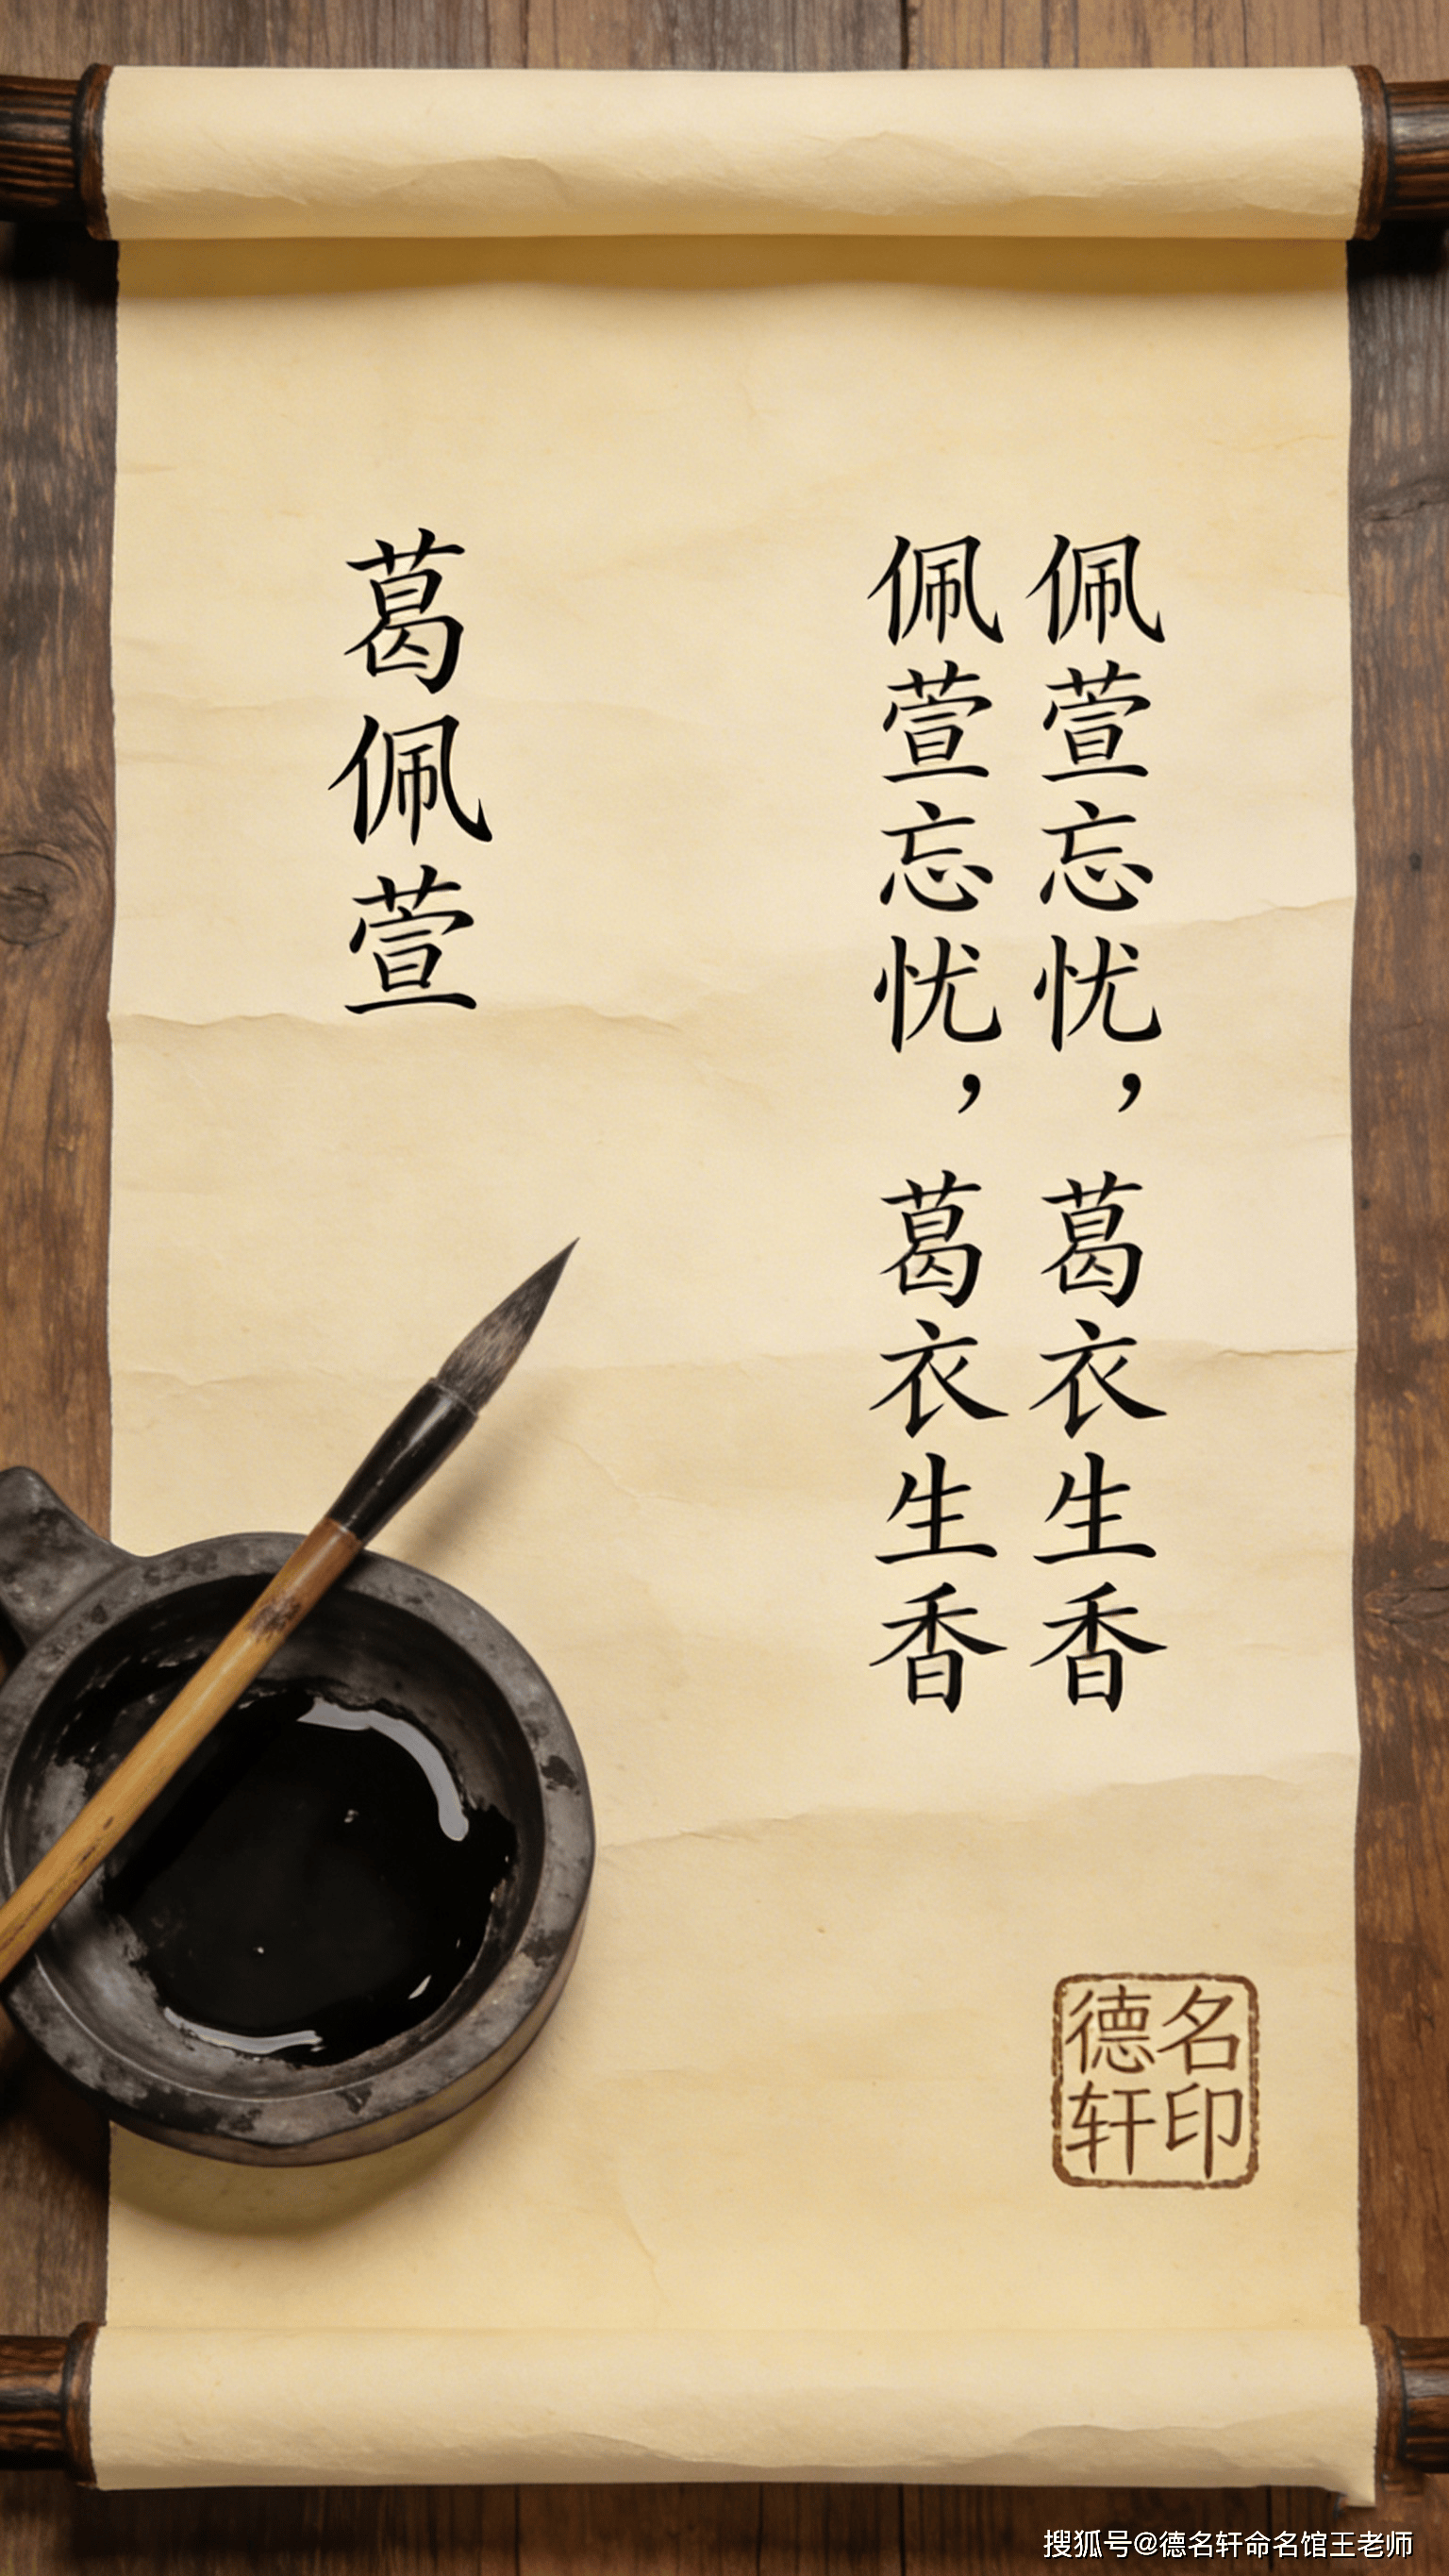 佩萱忘忧，葛衣生香
佩萱忘忧，葛衣生香
葛佩萱
德名
轩印
搜狐号@德名轩命名馆王老师